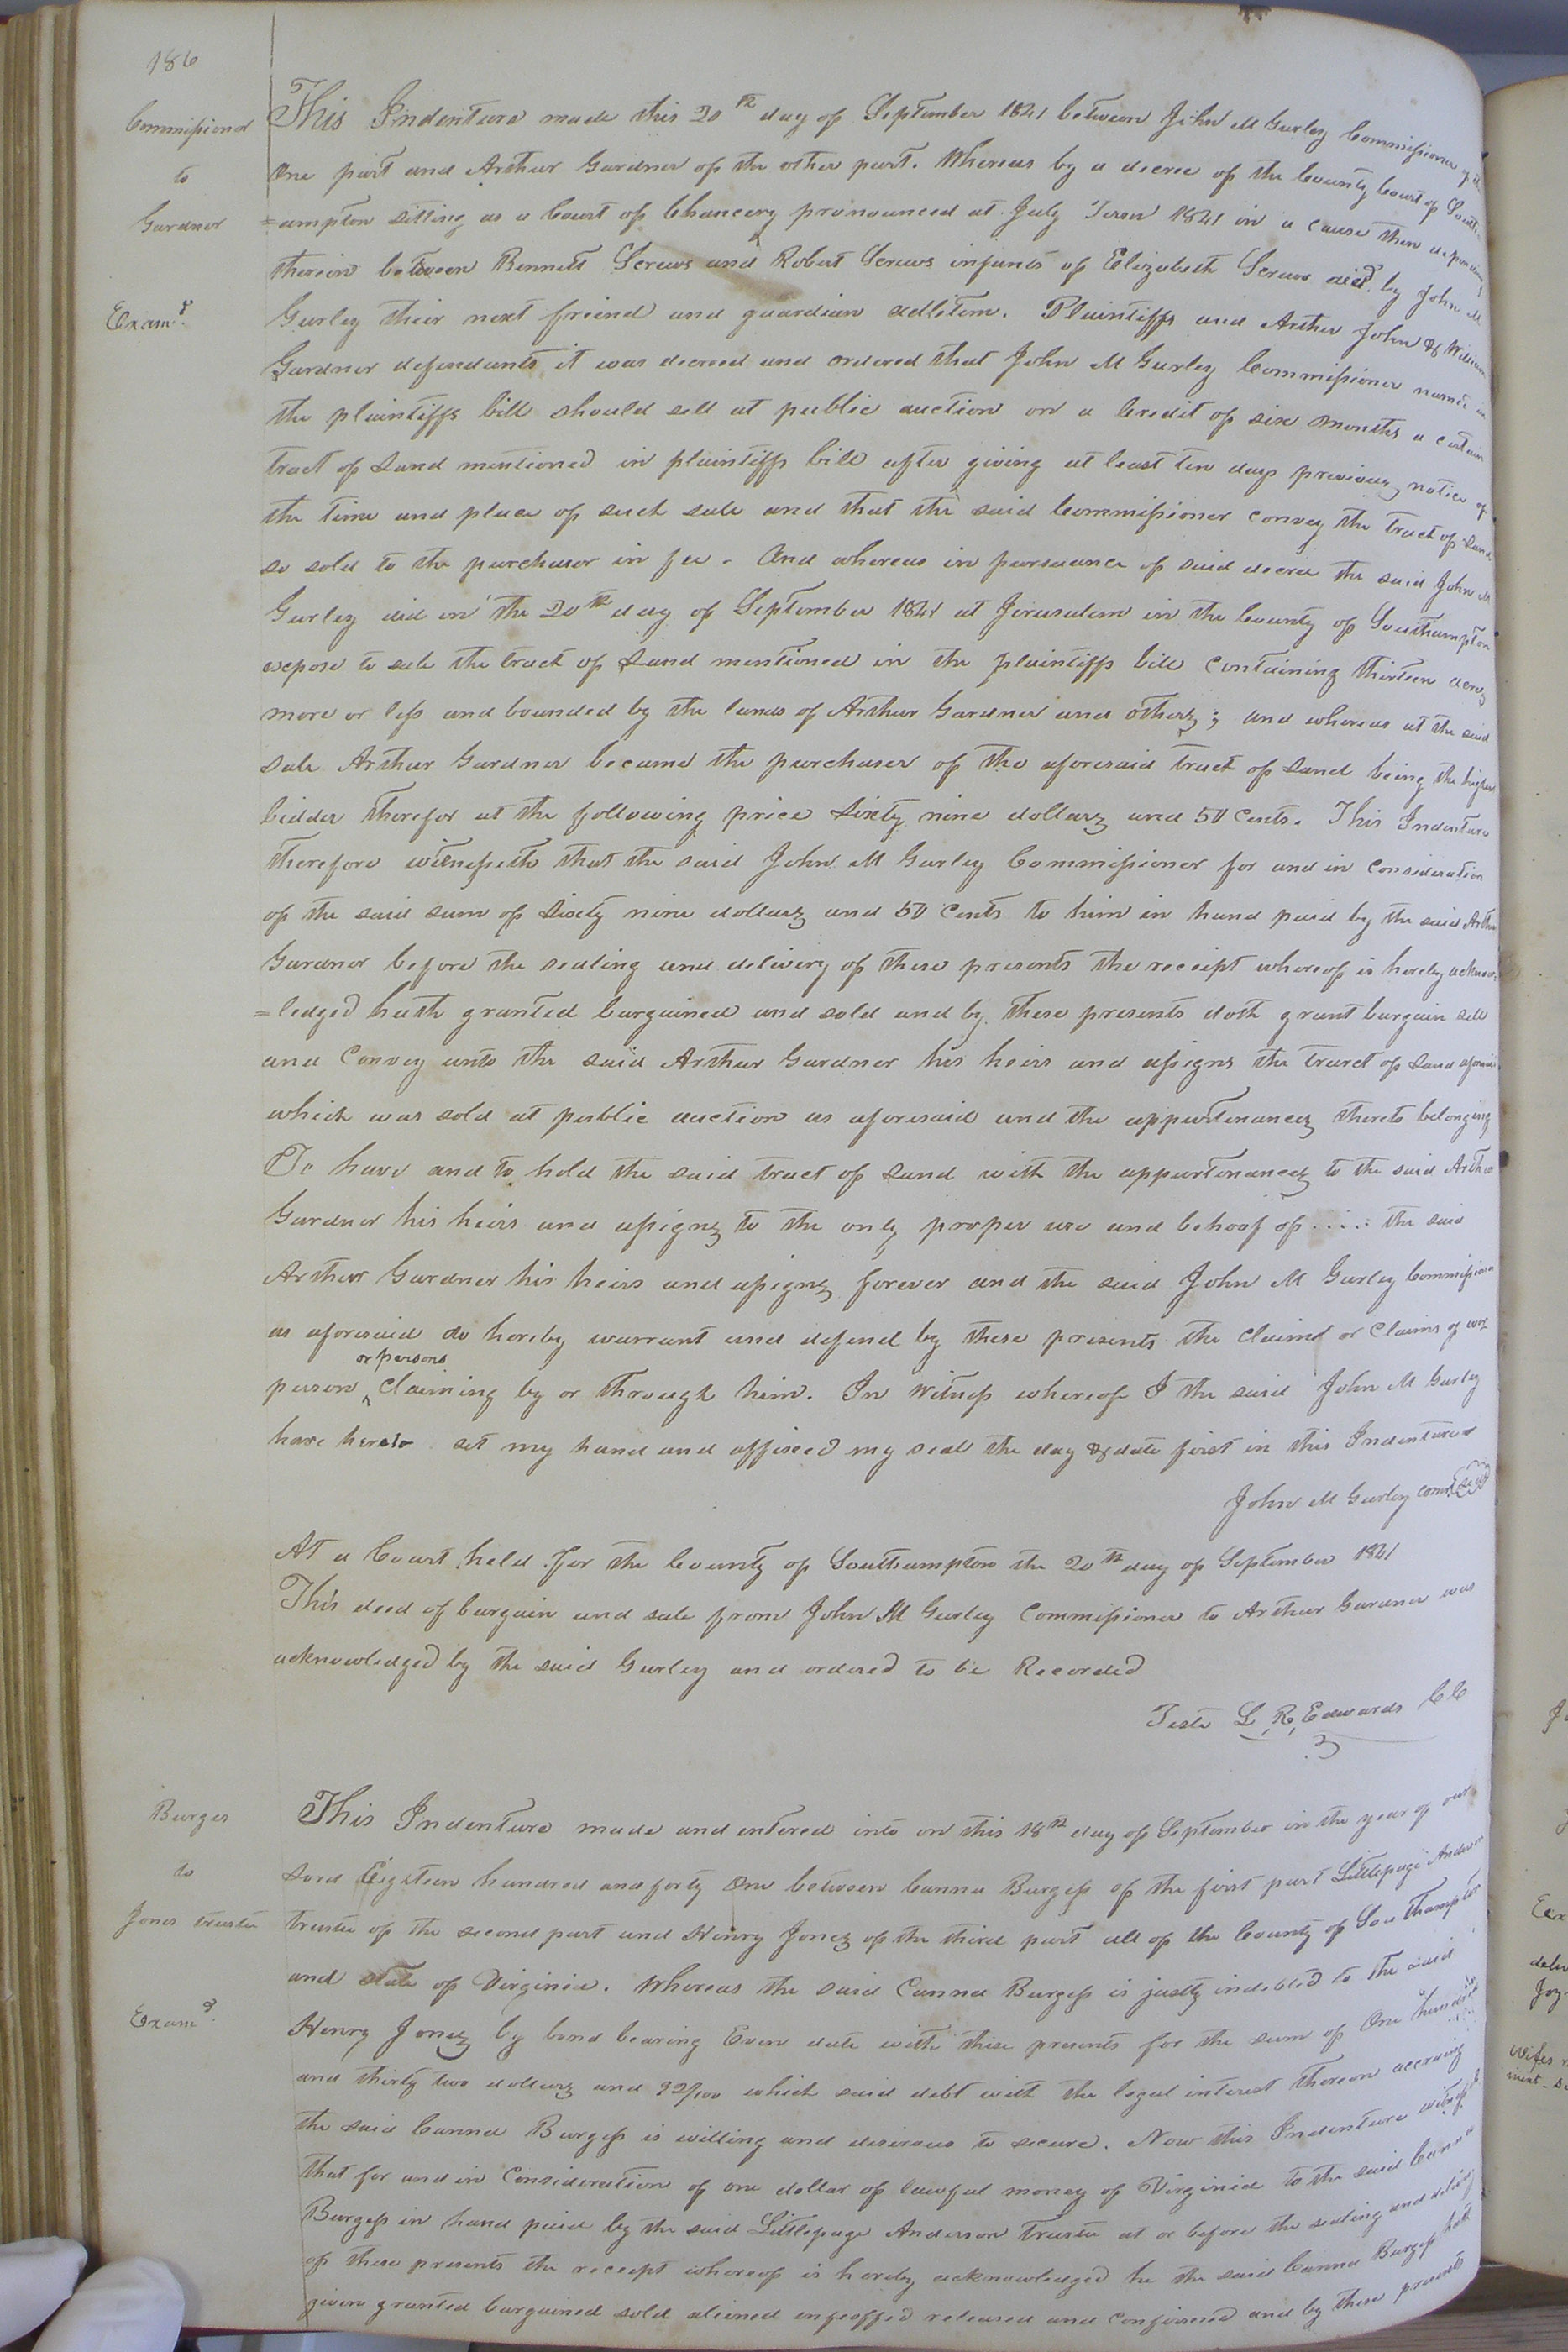 186
Commissioner
to
Gardner
Exam.d
This Indenture made this 20th day of September 1841 between John M Gurley Commissioner of the
one part and Arthur Gardner of the other part. Whereas by a decree of the County Court of South-
=ampton sitting as a Court of Chancery pronounced at July Term 1841 in a cause then depending
therein between Bennett Screws and Robert Screws infants of Elizabeth Screws decd. by John M
Gurley their next friend and guardian adlitem. Plaintiffs and Arthur John & William
Gardner defendants it was decreed and ordered that John M Gurley Commissioner named in
the plaintiffs bill should sell at public auction on a Credit of six months a certain
tract of Land mentioned in plaintiffs bill after giving at least ten days previous notice of
the time and place of such sale and that the said Commissioner convey the tract of Land
so sold to the purchaser in fee. And whereas in pursuance of said decree the said John M
Gurley did on the 20th day of September 1841 at Jerusalem in the County of Southampton
expose to sale the tract of Land mentioned in the plaintiffs bill Containing thirteen acres
more or less and bounded by the lands of Arthur Gardner and others; and whereas at the said
sale Arthur Gardner became the purchaser of the aforesaid tract of Land being the highest
bidder therefor at the following price Sixty nine dollars and 50 Cents. This Indenture
therefore witnesseth that the said John M Gurley Commissioner for and in Consideration
of the said sum of Sixty nine dollars and 50 Cents to him in hand paid by the said Arthur
Gardner before the sealing and delivery of these presents the receipt whereof is hereby acknow-
=ledged hath granted bargained and sold and by these presents doth grant bargain sell
and Convey unto the said Arthur Gardner his heirs and assigns the tract of Land aforesaid
which was sold at public auction as aforesaid and the appurtenances thereto belonging
To have and to hold the said tract of Land with the appurtenances to the said Arthur
Gardner his heirs and assigns to the only proper use and behoof of ..... the said
Arthur Gardner his heirs and assigns forever and the said John M Gurley Commissioner
as aforesaid do hereby warrant and defend by these presents the Claim or Claims of
or persons
person ^ Claiming by or through him. In Witness whereof I the said John M Gurley
have hereto set my hand and affixed my seal the day & date first in this Indenture
John M Gurley comr. Seal
At a Court held for the County of Southampton the 20th day of September 1841
This deed of bargain and sale from John M Gurley Commissioner to Arthur Gardner was
acknowledged by the said Gurley and ordered to be Recorded
Teste L, R, Edwards CC
Burges
to
Jones trustee
Exam.d
This Indenture made and entered into on this 18th day of September in the year of our
Lord Eighteen hundred and forty One between Canna Burgess of the first part Littlepage Anderson
trustee of the second part and Henry Jones of the third part all of the County of Southampton
and state of Virginia. Whereas the said Canna Burgess is justly indebted to the said
Henry Jones by bond bearing Even date with these presents for the sum of One hundred
and thirty two dollars and 92/100 which said debt with the legal interest thereon accruing
the said Canna Burgess is willing and desirous to secure. Now this Indenture witnesseth
that for and in Consideration of one dollar of lawful money of Virginia to the said Canna
Burgess in hand paid by the said Littlepage Anderson trustee at or before the sealing and delivy
of these presents the receipt whereof is hereby acknowledged he the said Canna Burgess hath
given granted bargained sold aliened enfeoffed released and confirmed and by these presents